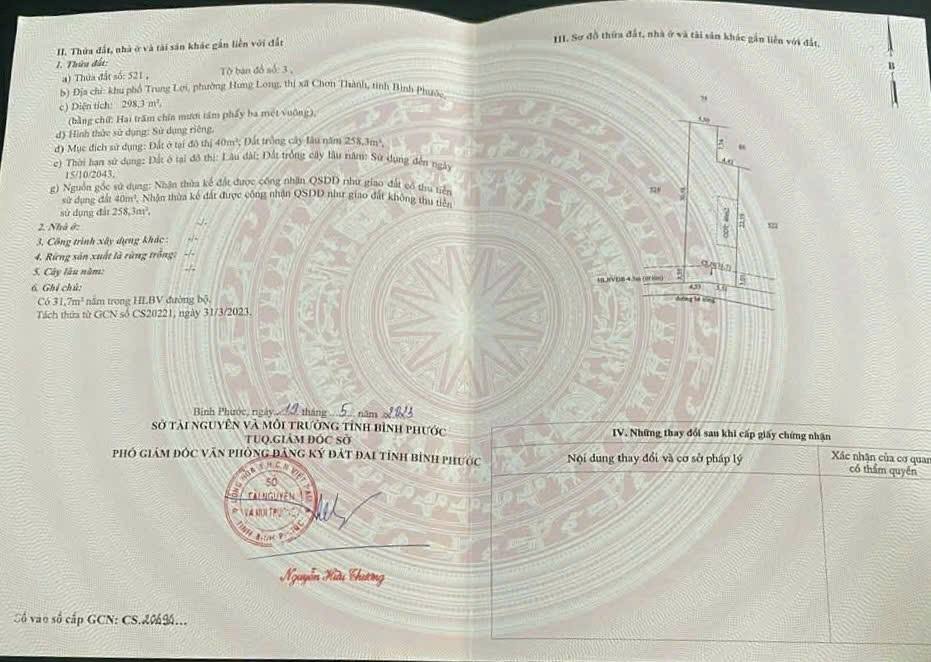 II. Thửa đất, nhà ở và tài sản khác gắn liền với đất
1. Thửa đất:
a) Thửa đất số: 521 , Tờ bản đồ số: 3 ,
b) Địa chỉ: khu phố Trung Lợi, phường Hưng Long, thị xã Chơn Thành, tỉnh Bình Phước,
c) Diện tích: 298,3 m²,
(bằng chữ: Hai trăm chín mươi tám phẩy ba mét vuông),
d) Hình thức sử dụng: Sử dụng riêng,
đ) Mục đích sử dụng: Đất ở tại đô thị 40m²; Đất trồng cây lâu năm 258,3m²,
e) Thời hạn sử dụng: Đất ở tại đô thị: Lâu dài; Đất trồng cây lâu năm: Sử dụng đến ngày
15/10/2043,
g) Nguồn gốc sử dụng: Nhận thừa kế đất được công nhận QSDĐ như giao đất có thu tiền
sử dụng đất 40m², Nhận thừa kế đất được công nhận QSDĐ như giao đất không thu tiền
sử dụng đất 258,3m²,
2. Nhà ở: -/-
3. Công trình xây dựng khác: -/-
4. Rừng sản xuất là rừng trồng: -/-
5. Cây lâu năm: -/-
6. Ghi chú:
Có 31,7m² nằm trong HLBV đường bộ.
Tách thửa từ GCN số CS20221, ngày 31/3/2023.
Bình Phước, ngày 19 tháng 5 năm 2023
SỞ TÀI NGUYÊN VÀ MÔI TRƯỜNG TỈNH BÌNH PHƯỚC
TUQ.GIÁM ĐỐC SỞ
PHÓ GIÁM ĐỐC VĂN PHÒNG ĐĂNG KÝ ĐẤT ĐAI TỈNH BÌNH PHƯỚC
SỞ
TÀI NGUYÊN
VÀ MÔI TRƯỜNG
TỈNH BÌNH PHƯỚC
Nguyễn Hữu Thương
Số vào sổ cấp GCN: CS.
III. Sơ đồ thửa đất, nhà ở và tài sản khác gắn liền với đất.
B
522
đường bê tông
IV. Những thay đổi sau khi cấp giấy chứng nhận
Nội dung thay đổi và cơ sở pháp lý
Xác nhận của cơ quan
có thẩm quyền